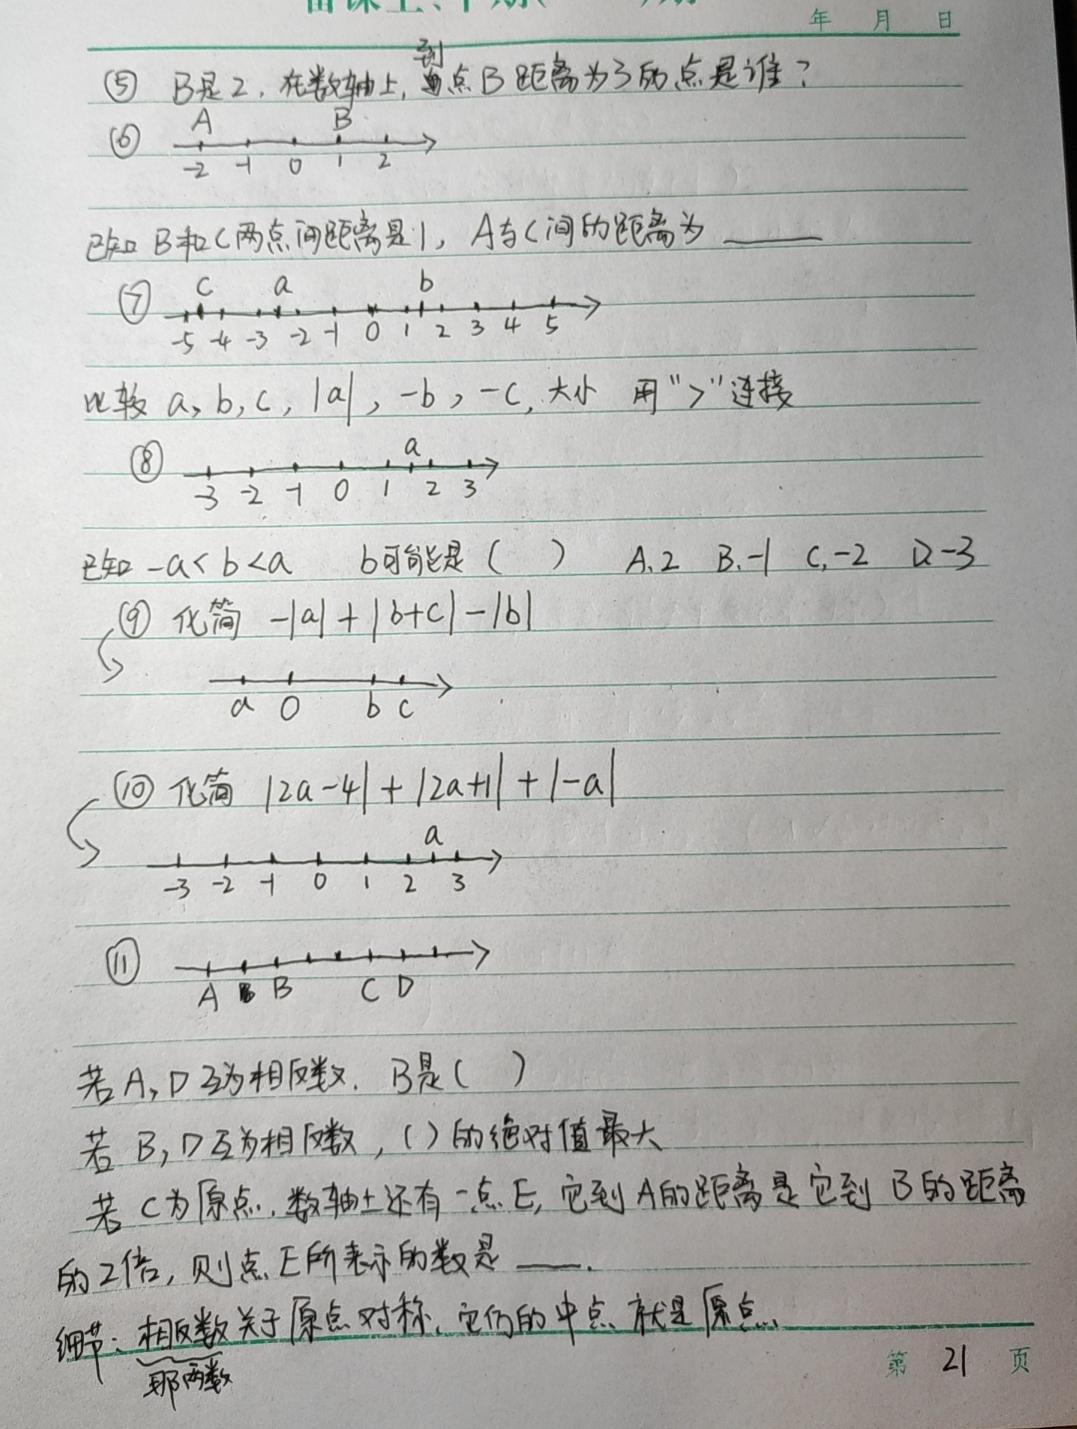 年 月 日
⑤ B是2，在数轴上，到点B距离为3的点是谁？
⑥ A B
-2 -1 0 1 2
已知B和C两点间距离是1，A与C间的距离为____
⑦ c a b
-5 -4 -3 -2 -1 0 1 2 3 4 5
比较 a, b, c, |a|, -b, -c, 大小 用">"连接
⑧ a
-3 -2 -1 0 1 2 3
已知 -a<b<a b可能是（ ） A.2 B.-1 C.-2 D.-3
⑨ 化简 -|a|+|b+c|-|b|
a 0 b c
⑩ 化简 |2a-4|+|2a+1|+|-a|
a
-3 -2 -1 0 1 2 3
⑪
A B C D
若A,D互为相反数．B是（ ）
若B,D互为相反数，（）的绝对值最大
若C为原点，数轴上还有一点E，它到A的距离是它到B的距离
的2倍，则点E所表示的数是____.
细节：相反数关于原点对称，它们的中点就是原点．
那两数
第 21 页